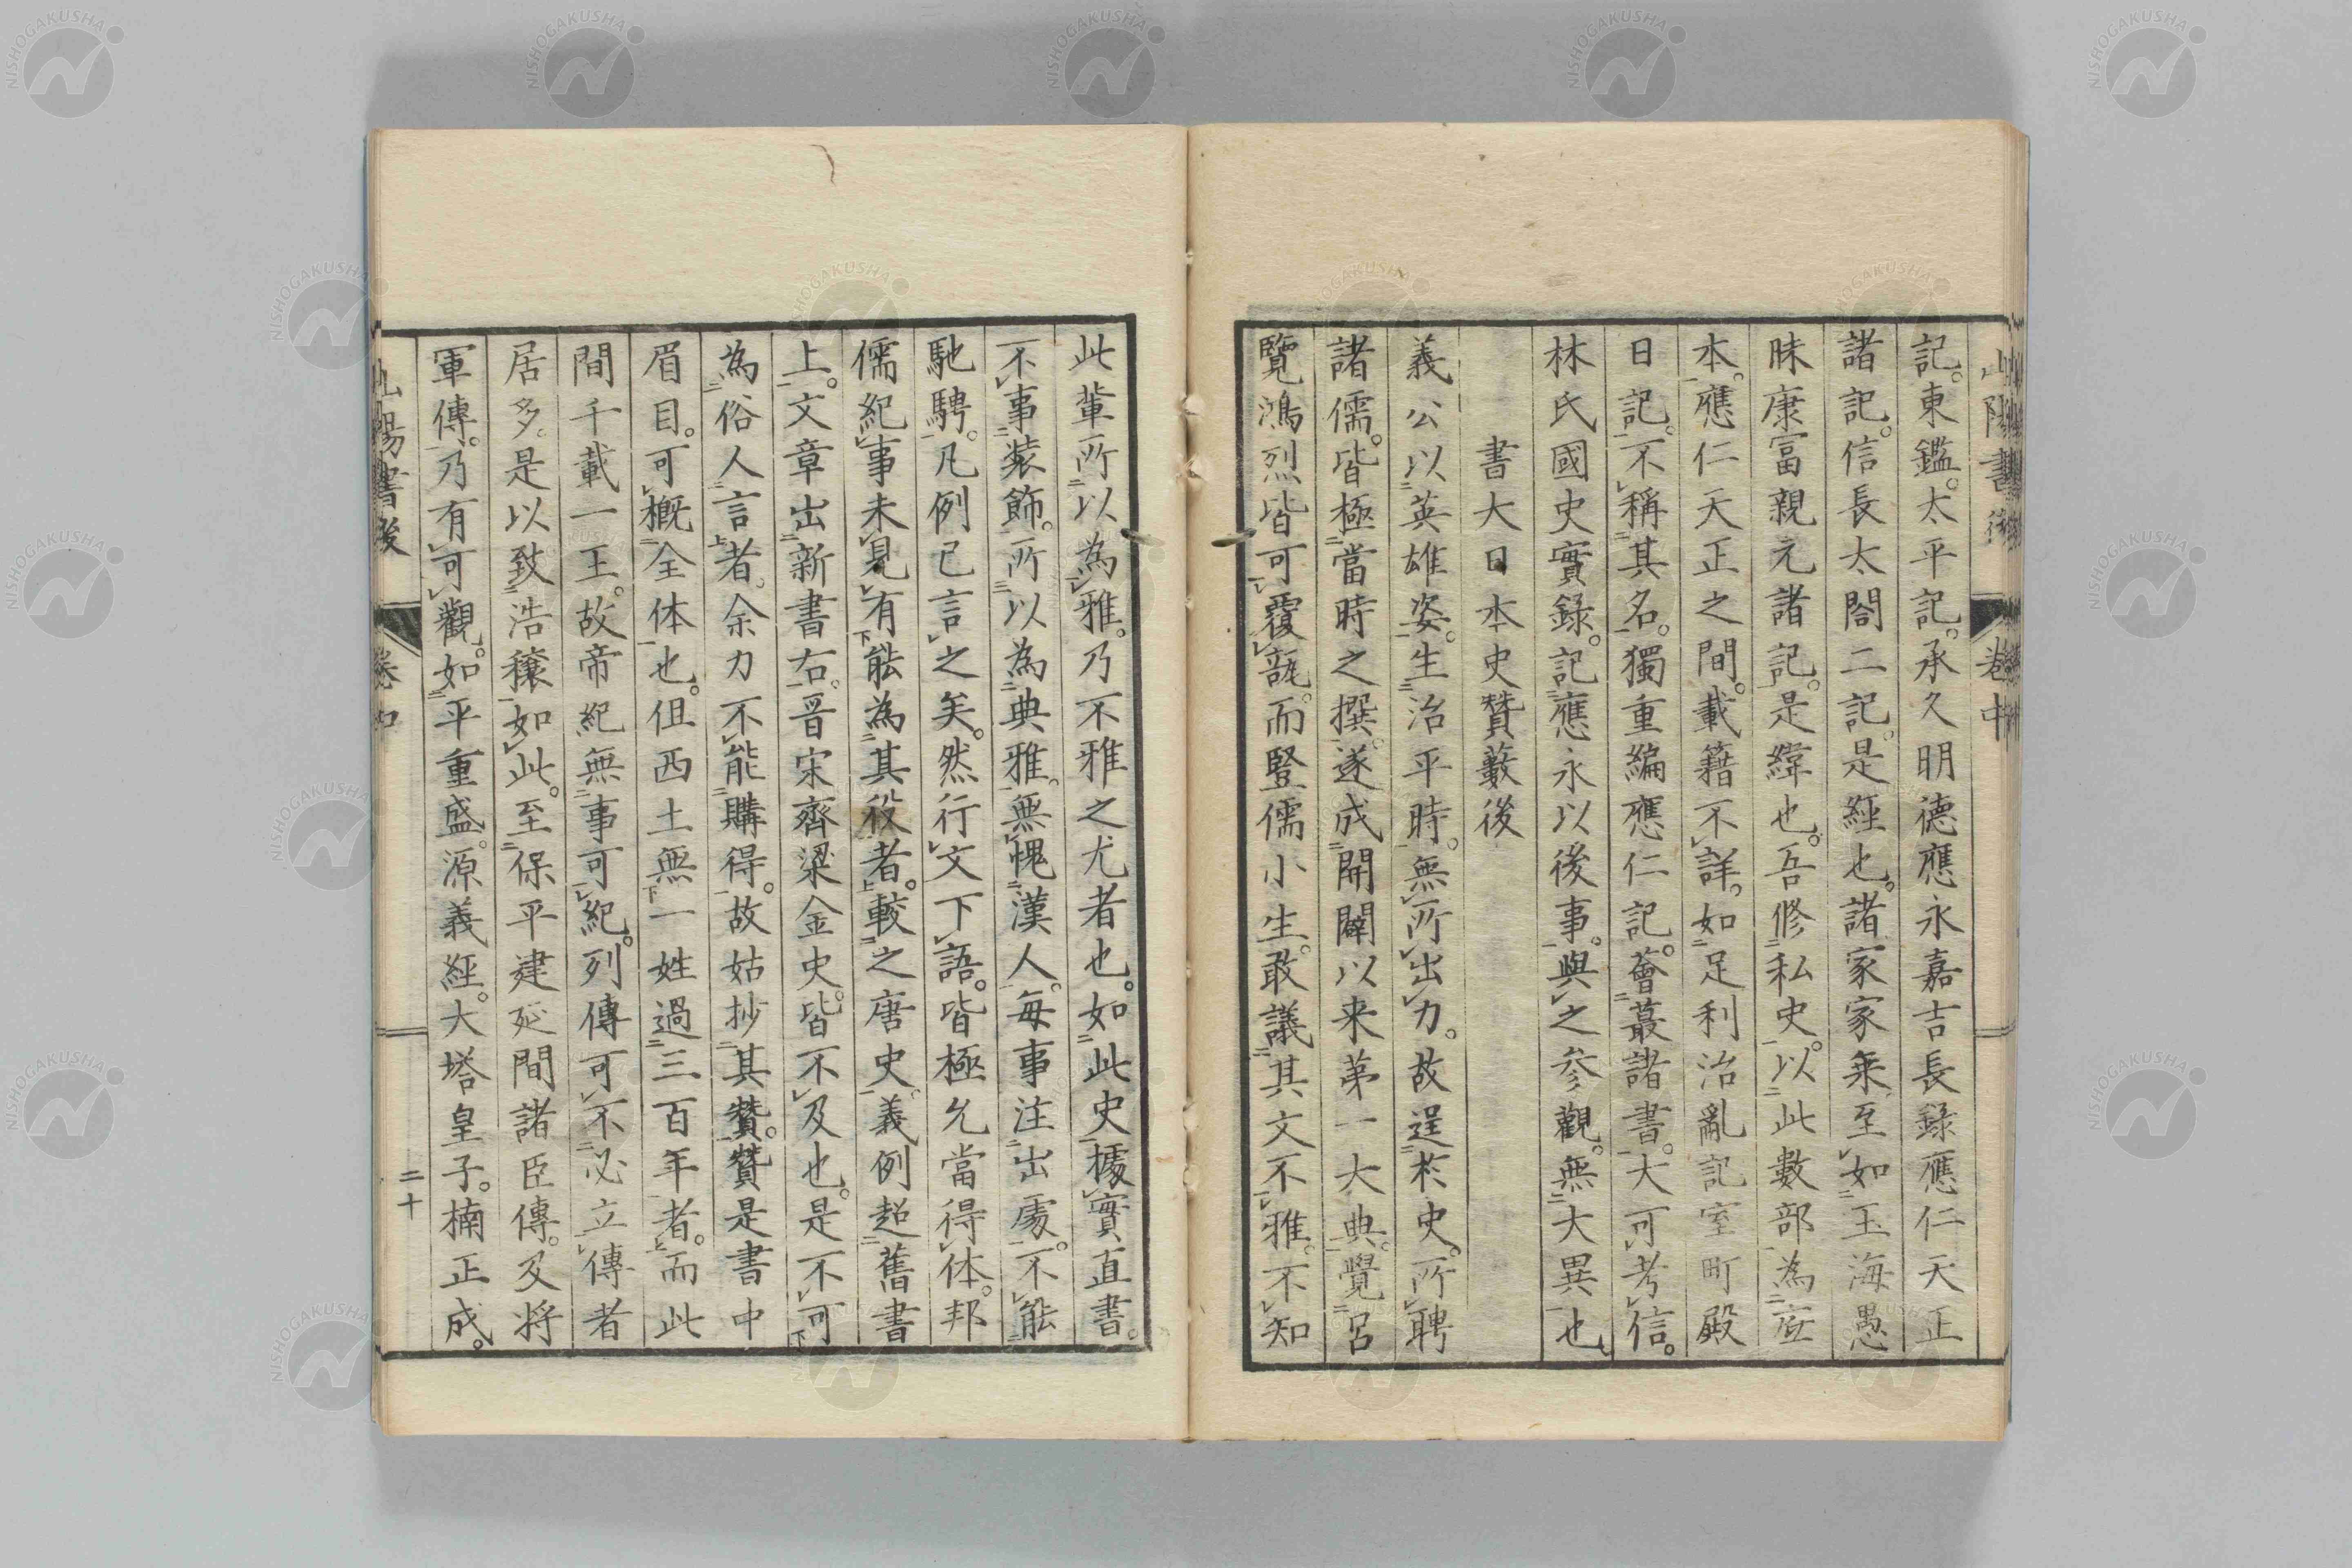 記。東鑑。太平記。承久明德應永嘉吉長錄應仁天正
諸記。信長太閤二記。是經也。諸家家乗至如玉海愚
昧康冨親元諸記。是緯也。吾修私史。以此數部為底
本。應仁天正之間。載籍不詳。如足利治亂記室町殿
日記。不稱其名。獨重編應仁記。薈蕞諸書。大可考信。
林氏國史實錄。記應永以後事。與之參觀。無大異也
書大日本史贊藪後
義公以英雄姿。生治平時。無所出力。故逞於史。所聘
諸儒。皆極當時之撰。遂成開闢以来第一大典。覺呂
覽鴻烈皆可覆瓿。而豎儒小生。敢議其文不雅。不知
此輩所以為雅。乃不雅之尤者也。如此史據實直書。
不事裝飾。所以為典雅。無愧漢人。每事注出處。不能
馳騁。凡例已言之矣。然行文下語。皆極允當得体。邦
儒紀事未見有能為其役者。較之唐史。義例超舊書
上。文章出新書右。晋宋齊梁金史。皆不及也。是不可
為俗人言者。余力不能購得。故姑抄其贊。贊是書中
眉目。可概全体也。但西土無一姓過三百年者。而此
間千載一王。故帝紀無事可紀。列傳可不必立傳者
居多。是以致浩穰如此。至保平建延間諸臣傳。及将
軍傳。乃有可觀。如平重盛。源義經。大塔皇子。楠正成。
山陽書後
卷中
二十